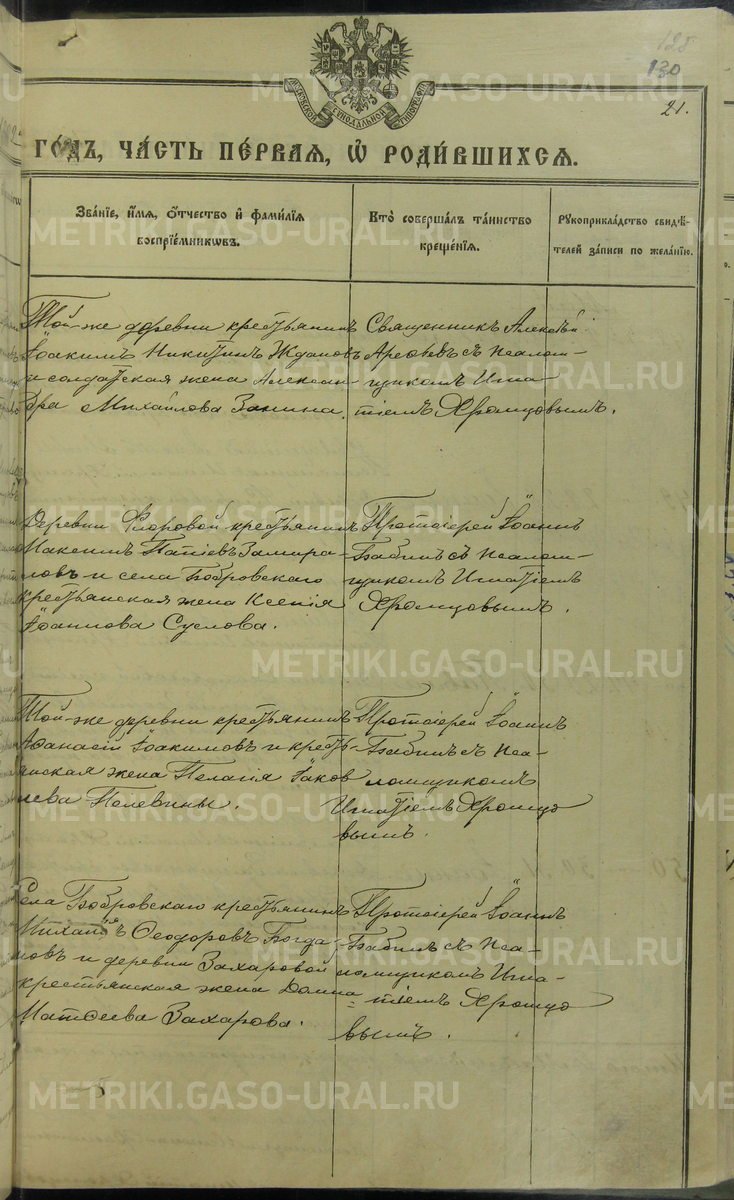 128
130
21.
МОСКОВСКОЙ СѴНОДАЛЬНОЙ ТИПОГРАФІИ
ГО́ДЪ, ЧА́СТЬ ПЕ́РВАЯ, Ѡ҆ РОДИ́ВШИХСЯ.
Зва́нїе, и҆́мя, ѻ҆́тчество и҆ фами́лїя
воспрїе́мникѡвъ.
Кто̀ соверша́лъ та́инство
креще́нїя.
Рꙋкоприкла́дство свидѣ́-
телей за́писи по жела́нїю.
Той-же деревни крестьянинъ
Іоакимъ Никитинъ Ждановъ
и солдатская жена Алексан-
дра Михайлова Занина.
Священникъ Алексѣй
Арефьевъ съ псалом-
щикомъ Игна
тіемъ Хромцовымъ.
Деревни Фроловой крестьянинъ
Максимъ Замира-
ловъ и села Бобровскаго
крестьянская жена Ксенія
Іоаннова Суслова.
Протоіерей Іоаннъ
Бабинъ съ псалом-
щикомъ Игнатіемъ
Хромцовымъ.
Той-же деревни крестьянинъ
Аѳанасій Іоакимовъ и кресть-
янская жена Пелагія Іаков
лева Пелевины.
Протоіерей Іоаннъ
Бабинъ съ пса-
ломщикомъ
Игнатіемъ Хромцо
вымъ.
Села Бобровскаго крестьянинъ
Михаилъ Ѳеодоровъ Богда-
новъ и деревни Захаровой
крестьянская жена Домна
Матѳеева Захарова.
Протоіерей Іоаннъ
Бабинъ съ пса-
ломщикомъ Игна-
тіемъ Хромцо
вымъ.
METRIKI.GASO-URAL.RU